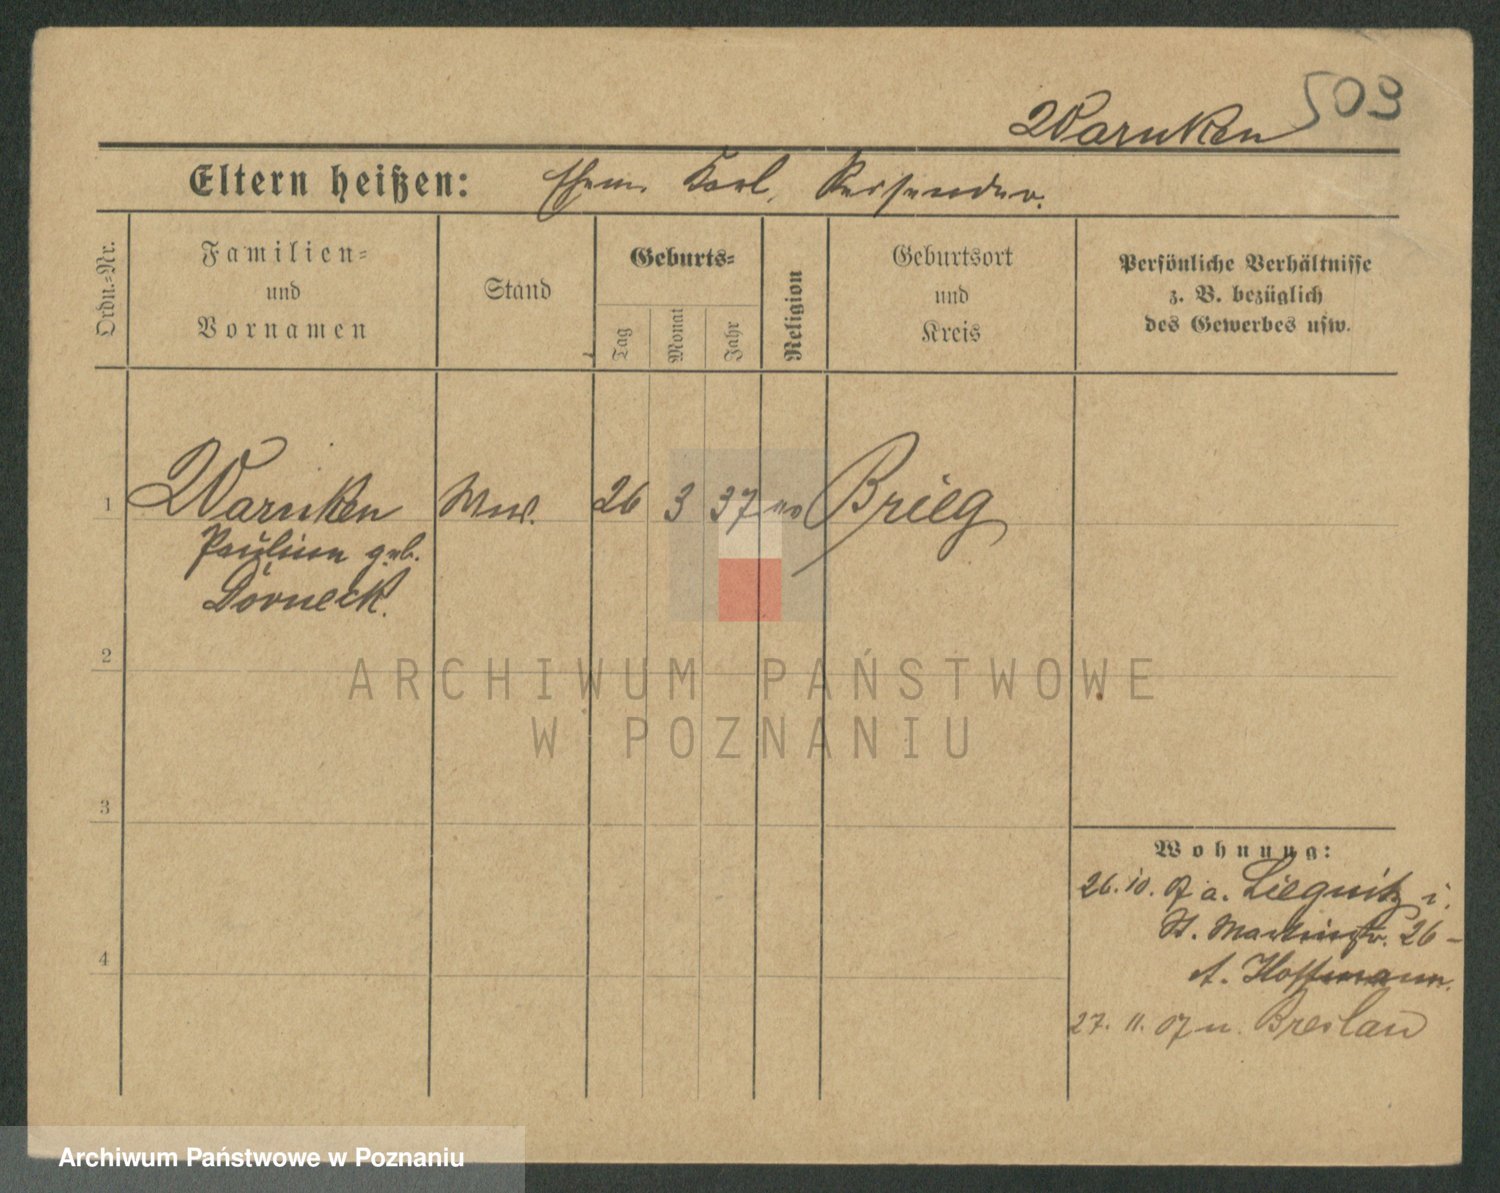 503
Warnken
Eltern heißen: Ehem. Karl, Reisender.
Ordn.=Nr.
Familien=
und
Vornamen
Stand
Geburts=
Tag
Monat
Jahr
Religion
Geburtsort
und
Kreis
Persönliche Verhältnisse
z. B. bezüglich
des Gewerbes usw.
1 Warnken Ww. 26 3 37 ev Brieg
Pauline geb.
Dorneck.
2
3
4
Wohnung:
26. 10. 07 a. Liegnitz i.
St. Martinstr. 26 –
A. Hoffmann.
27. 11. 07 n. Breslau
ARCHIWUM PAŃSTWOWE
W POZNANIU
Archiwum Państwowe w Poznaniu